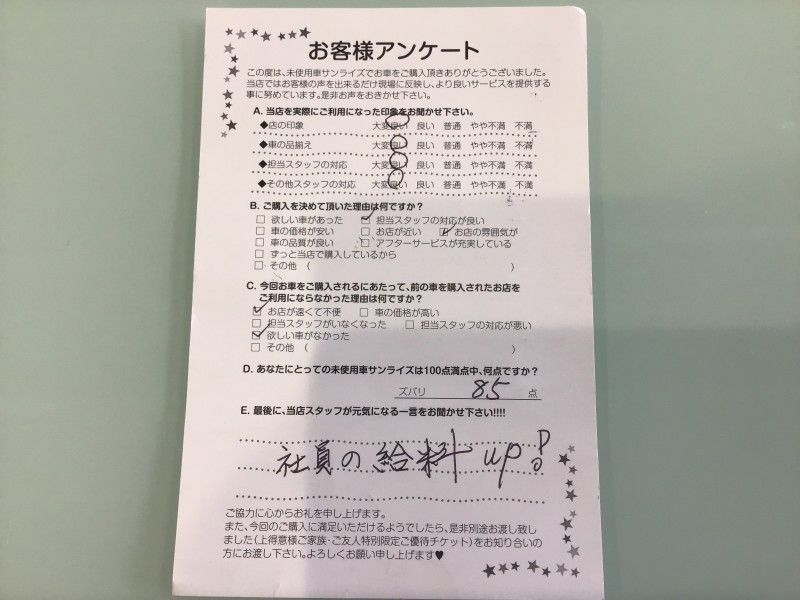 お客様アンケート
この度は、未使用車サンライズでお車をご購入頂きありがとうございました。
当店ではお客様の声を出来るだけ現場に反映し、より良いサービスを提供する
事に努めています。是非お声をおきかせ下さい。
A. 当店を実際にご利用になった印象をお聞かせ下さい。
◆店の印象 大変良い 良い 普通 やや不満 不満
◆車の品揃え 大変良い 良い 普通 やや不満 不満
◆担当スタッフの対応 大変良い 良い 普通 やや不満 不満
◆その他スタッフの対応 大変良い 良い 普通 やや不満 不満
B. ご購入を決めて頂いた理由は何ですか?
□ 欲しい車があった ☑ 担当スタッフの対応が良い
□ 車の価格が安い □ お店が近い ☑ お店の雰囲気が
□ 車の品質が良い □ アフターサービスが充実している
□ ずっと当店で購入しているから
□ その他 ( )
C. 今回お車をご購入されるにあたって、前の車を購入されたお店を
ご利用にならなかった理由は何ですか?
☑ お店が遠くて不便 □ 車の価格が高い
□ 担当スタッフがいなくなった □ 担当スタッフの対応が悪い
☑ 欲しい車がなかった
□ その他 ( )
D. あなたにとっての未使用車サンライズは100点満点中、何点ですか?
ズバリ 85 点
E. 最後に、当店スタッフが元気になる一言をお聞かせ下さい!!!!
社員の給料up!
ご協力に心からお礼を申し上げます。
また、今回のご購入に満足いただけるようでしたら、是非別途お渡し致し
ました(上得意様ご家族・ご友人特別限定ご優待チケット)をお知り合いの
方にお渡し下さい。よろしくお願い申し上げます♥